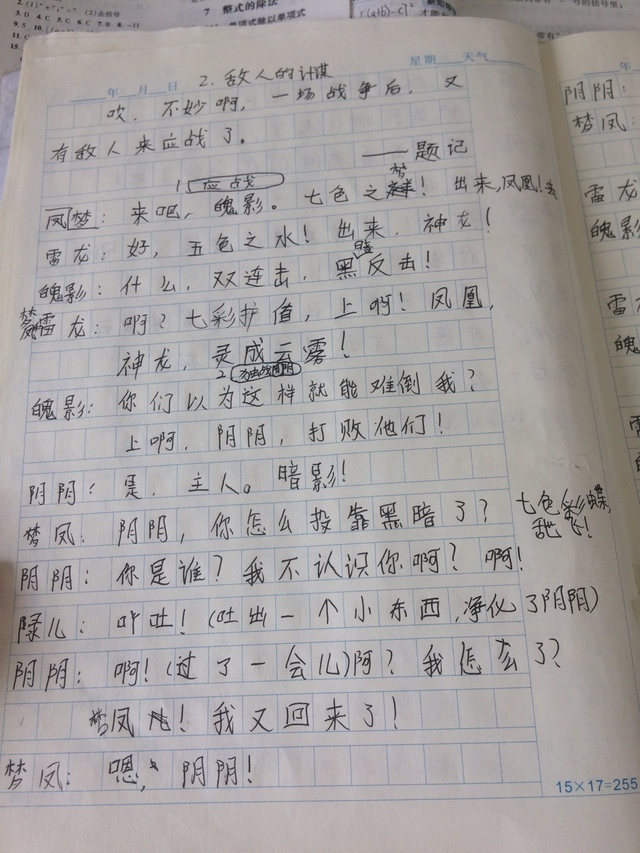 7 整式的除法
单项式除以单项式
年 月 日 星期 天气
2. 敌人的计谋
吹.不妙啊,一场战争后,又
有敌人来应战了。
——题记
1 应战
凤梦:来吧,魄影。七色之梦!出来,凤凰!去
雷龙:好,五色之水!出来.神龙!
魄影:什么,双连击,黑暗反击!
梦凤雷龙:啊?七彩护值,上啊!凤凰,
神龙,灵成云雾!
2
魄影:你们以为这样就能难倒我?
上啊,阴阴,打败他们!
阴阴:是.主人。暗影!
梦凤:阴阴,你怎么投靠黑暗了?七色彩蝶,
飞!
阴阴:你是谁?我不认识你啊?啊!
绿儿:吐!(吐出一个小东西,净化了阴阴)
阴阴:啊!(过了一会儿)阿?我怎么了?
梦凤!我又回来了!
梦凤:嗯,阴阴!
15×17=255
年
阴阴:
梦凤:
雷龙
魄影
雷
魄